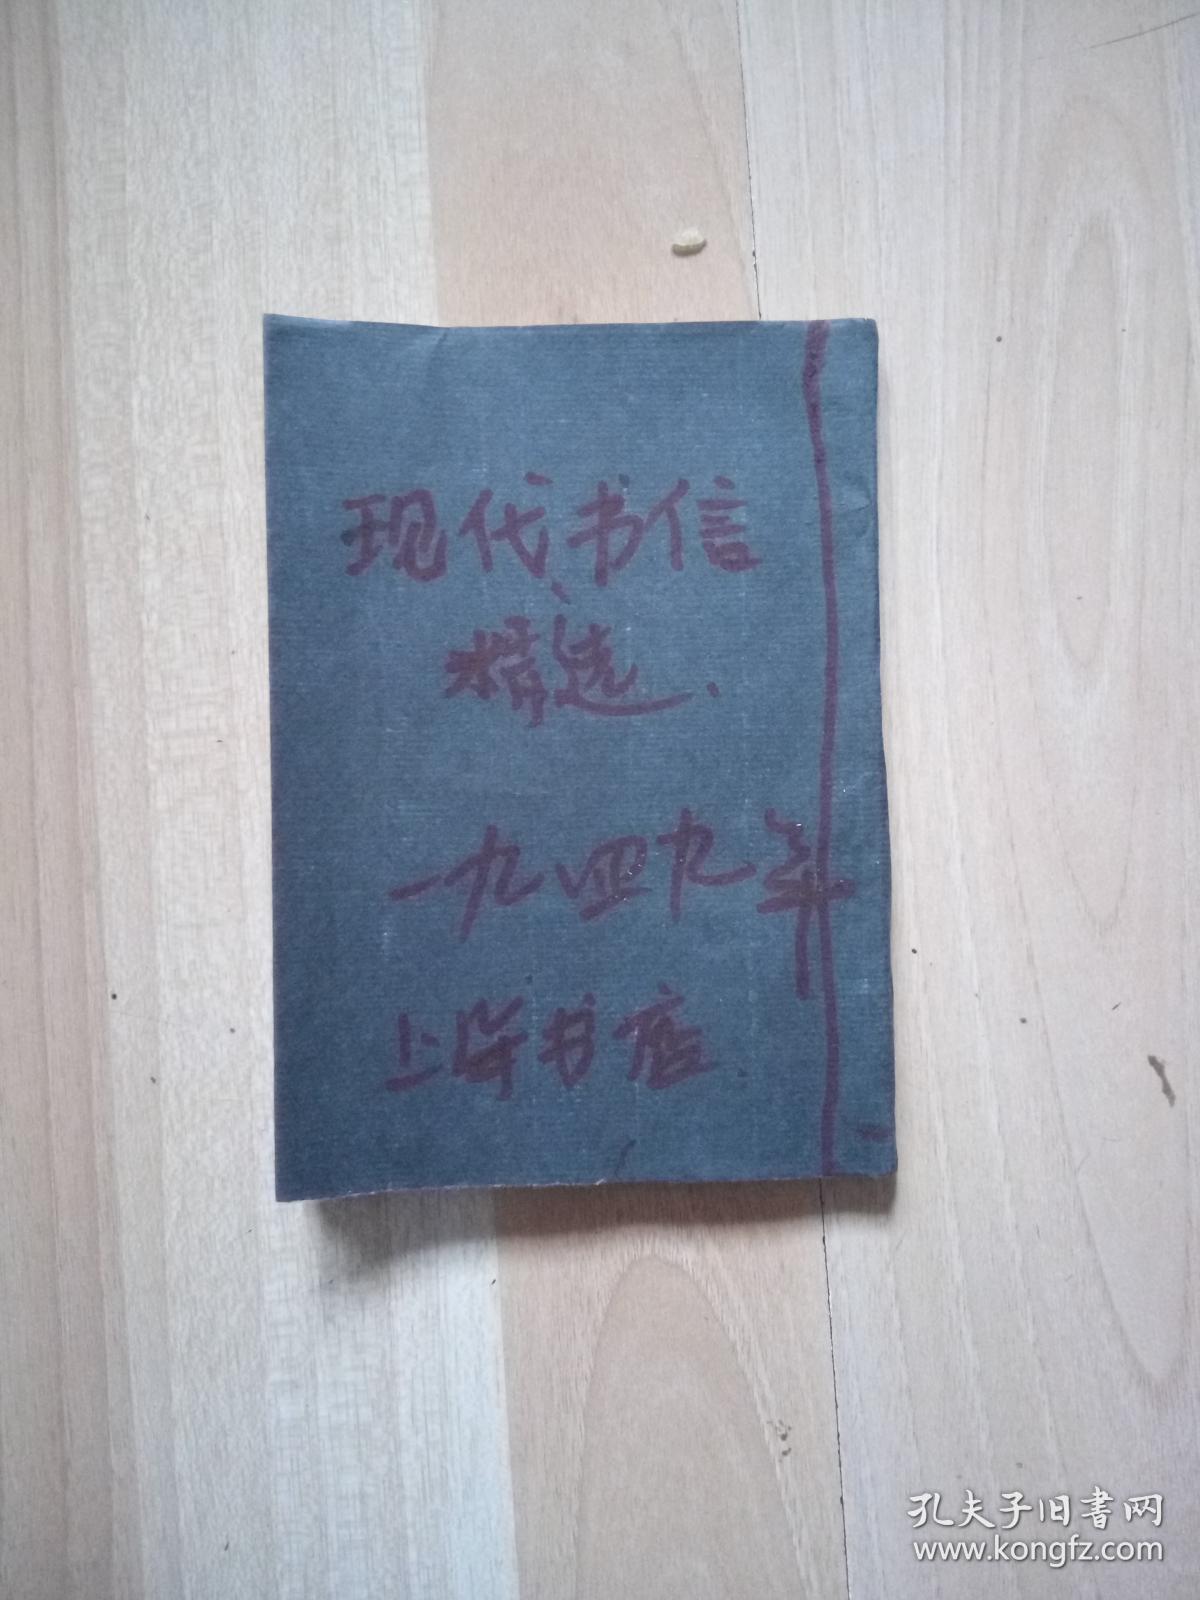 现代书信
精选.
一九四九年
上海书店
孔夫子旧書网
www.kongfz.com